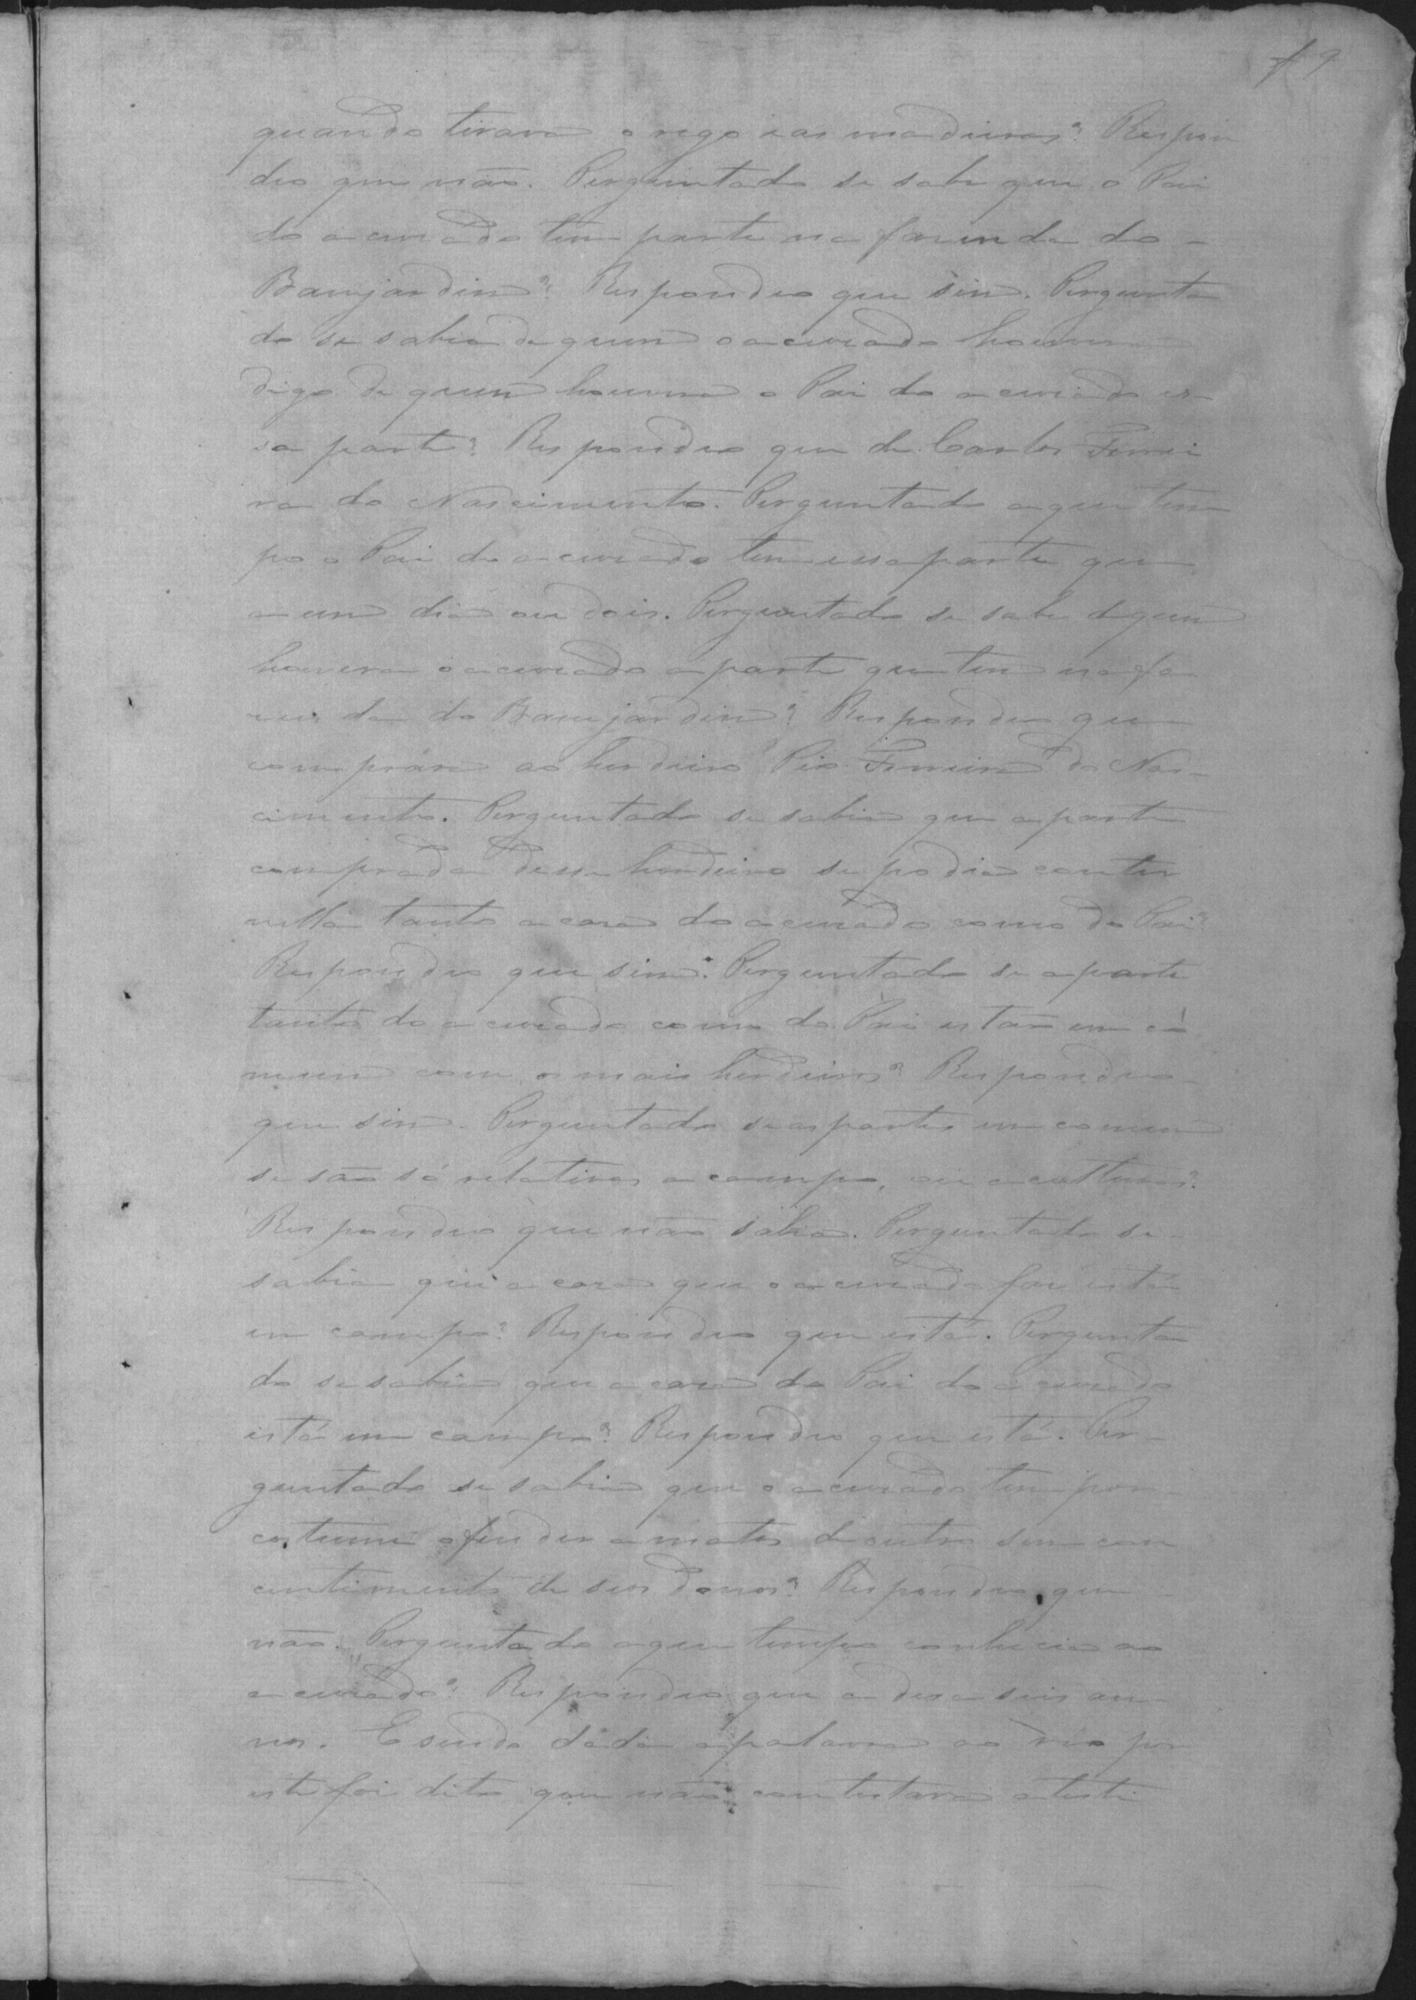 quando tirava o rego e as madeiras? Respon
deo que não. Perguntado se sabe que o Pai
do acusado tem parte na fazenda do
Bomjardim? Respondeo que sim. Pergunta
do se sabia de quem o acusado houvera
digo de quem houvera o Pai do acusado es
sa parte? Respondeo que de Carlos Ferrei
ra do Nascimento. Perguntado a que tem
po o Pai do acusado tem essa parte que
a um dia ou dois. Perguntado se sabe de quem
houvera o acusado a parte que tem na fa
zenda do Bomjardim? Respondeo que
comprára ao herdeiro Pio Ferreira do Nas
cimento. Perguntado se sabia que a parte
comprada desse herdeiro se podia conter
nella tanto a casa do acusado como do Pai?
Respondeo que sim. Perguntado se a parte
tanto do acusado como do Pai estão em co
mum com os mais herdeiros? Respondeo
que sim. Perguntado se as partes em comum
se são só relativas a campo, ou a culturas?
Respondeo que não sabia. Perguntado se
sabia que a casa que o acusado faz está
em campo? Respondeo que está. Pergunta
do se sabia que a casa do Pai do acusado
está em campo? Respondeo que está. Per
guntado se sabia que o acusado tem por
costume ofender a matos de outro sem con
centimento de seus donos? Respondeo que
não. Perguntado a que tempo conhecia ao
acusado? Respondeo que a deseseis an
nos. E sendo dada a palavra ao réo por
este foi dito que não contestava a teste